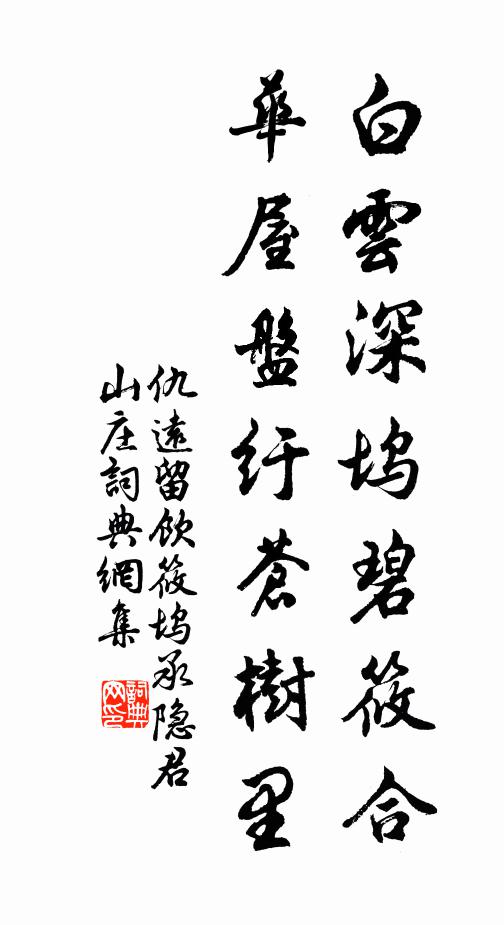 白雲深塢碧筱合
華屋盤紆蒼樹里
仇遠留飲筱塢承隐君
山庄詞典網集
詞典
网印